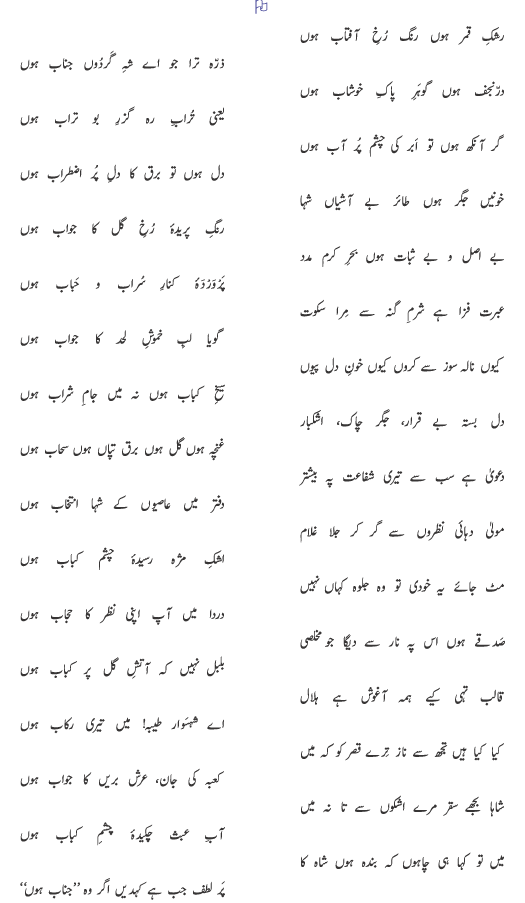 رشکِ قمر ہوں رنگِ رُخِ آفتاب ہوں
ذرّہ ترا جو اے شہِ گَردُوں جناب ہوں
درِّنجف ہوں گوہَرِ پاکِ خوشاب ہوں
یعنی تُرابِ رہ گزرِ بو تراب ہوں
گر آنکھ ہوں تو اَبر کی چشمِ پُر آب ہوں
دل ہوں تو برق کا دلِ پُر اضطراب ہوں
خونیں جگر ہوں طائرِ بے آشیاں شہا
رنگِ پریدۂ رُخِ گل کا جواب ہوں
بے اصل و بے ثبات ہوں بحرِ کرم مدد
پَرْوَرْدَۂ کنارِ سُراب و حَباب ہوں
عبرت فزا ہے شرمِ گنہ سے مِرا سکوت
گویا لبِ خموشِ لحد کا جواب ہوں
کیوں نالہ سوز سے کروں کیوں خونِ دل پیوں
سیخِ کباب ہوں نہ میں جامِ شراب ہوں
دل بستہ بے قرار، جگر چاک، اشکبار
غنچہ ہوں گل ہوں برقِ تپاں ہوں سحاب ہوں
دعویٰ ہے سب سے تیری شفاعت پہ بیشتر
دفتر میں عاصیوں کے شہا انتخاب ہوں
مولیٰ دہائی نظروں سے گر کر جلا غلام
اشکِ مژہ رسیدۂ چشمِ کباب ہوں
مٹ جائے یہ خودی تو وہ جلوہ کہاں نہیں
دردا میں آپ اپنی نظر کا حجاب ہوں
صَدقے ہوں اس پہ نار سے دیگا جو مخلصی
بلبل نہیں کہ آتشِ گل پر کباب ہوں
قالب تہی کیے ہمہ آغوش ہے ہلال
اے شہسَوار طیبہ! میں تیری رکاب ہوں
کیا کیا ہیں تجھ سے ناز تِرے قصر کو کہ میں
کعبہ کی جان، عرشِ بریں کا جواب ہوں
شاہا بجھے سقر مرے اشکوں سے تا نہ میں
آبِ عبث چکیدۂ چشمِ کباب ہوں
میں تو کہا ہی چاہوں کہ بندہ ہوں شاہ کا
پَر لطف جب ہے کہدیں اگر وہ ”جناب ہوں“